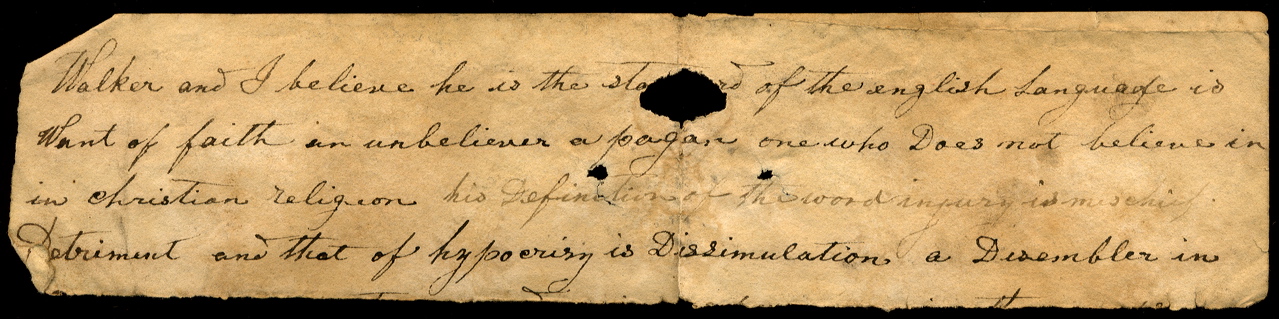 Walker and I believe he is the sta rd of the english Language is
Want of faith an unbeliever a pagan one who Does not believe in
in christian religion his Definition of the word injury is mischief.
Detriment and that of hypocrisy is Dissimulation a Desembler in